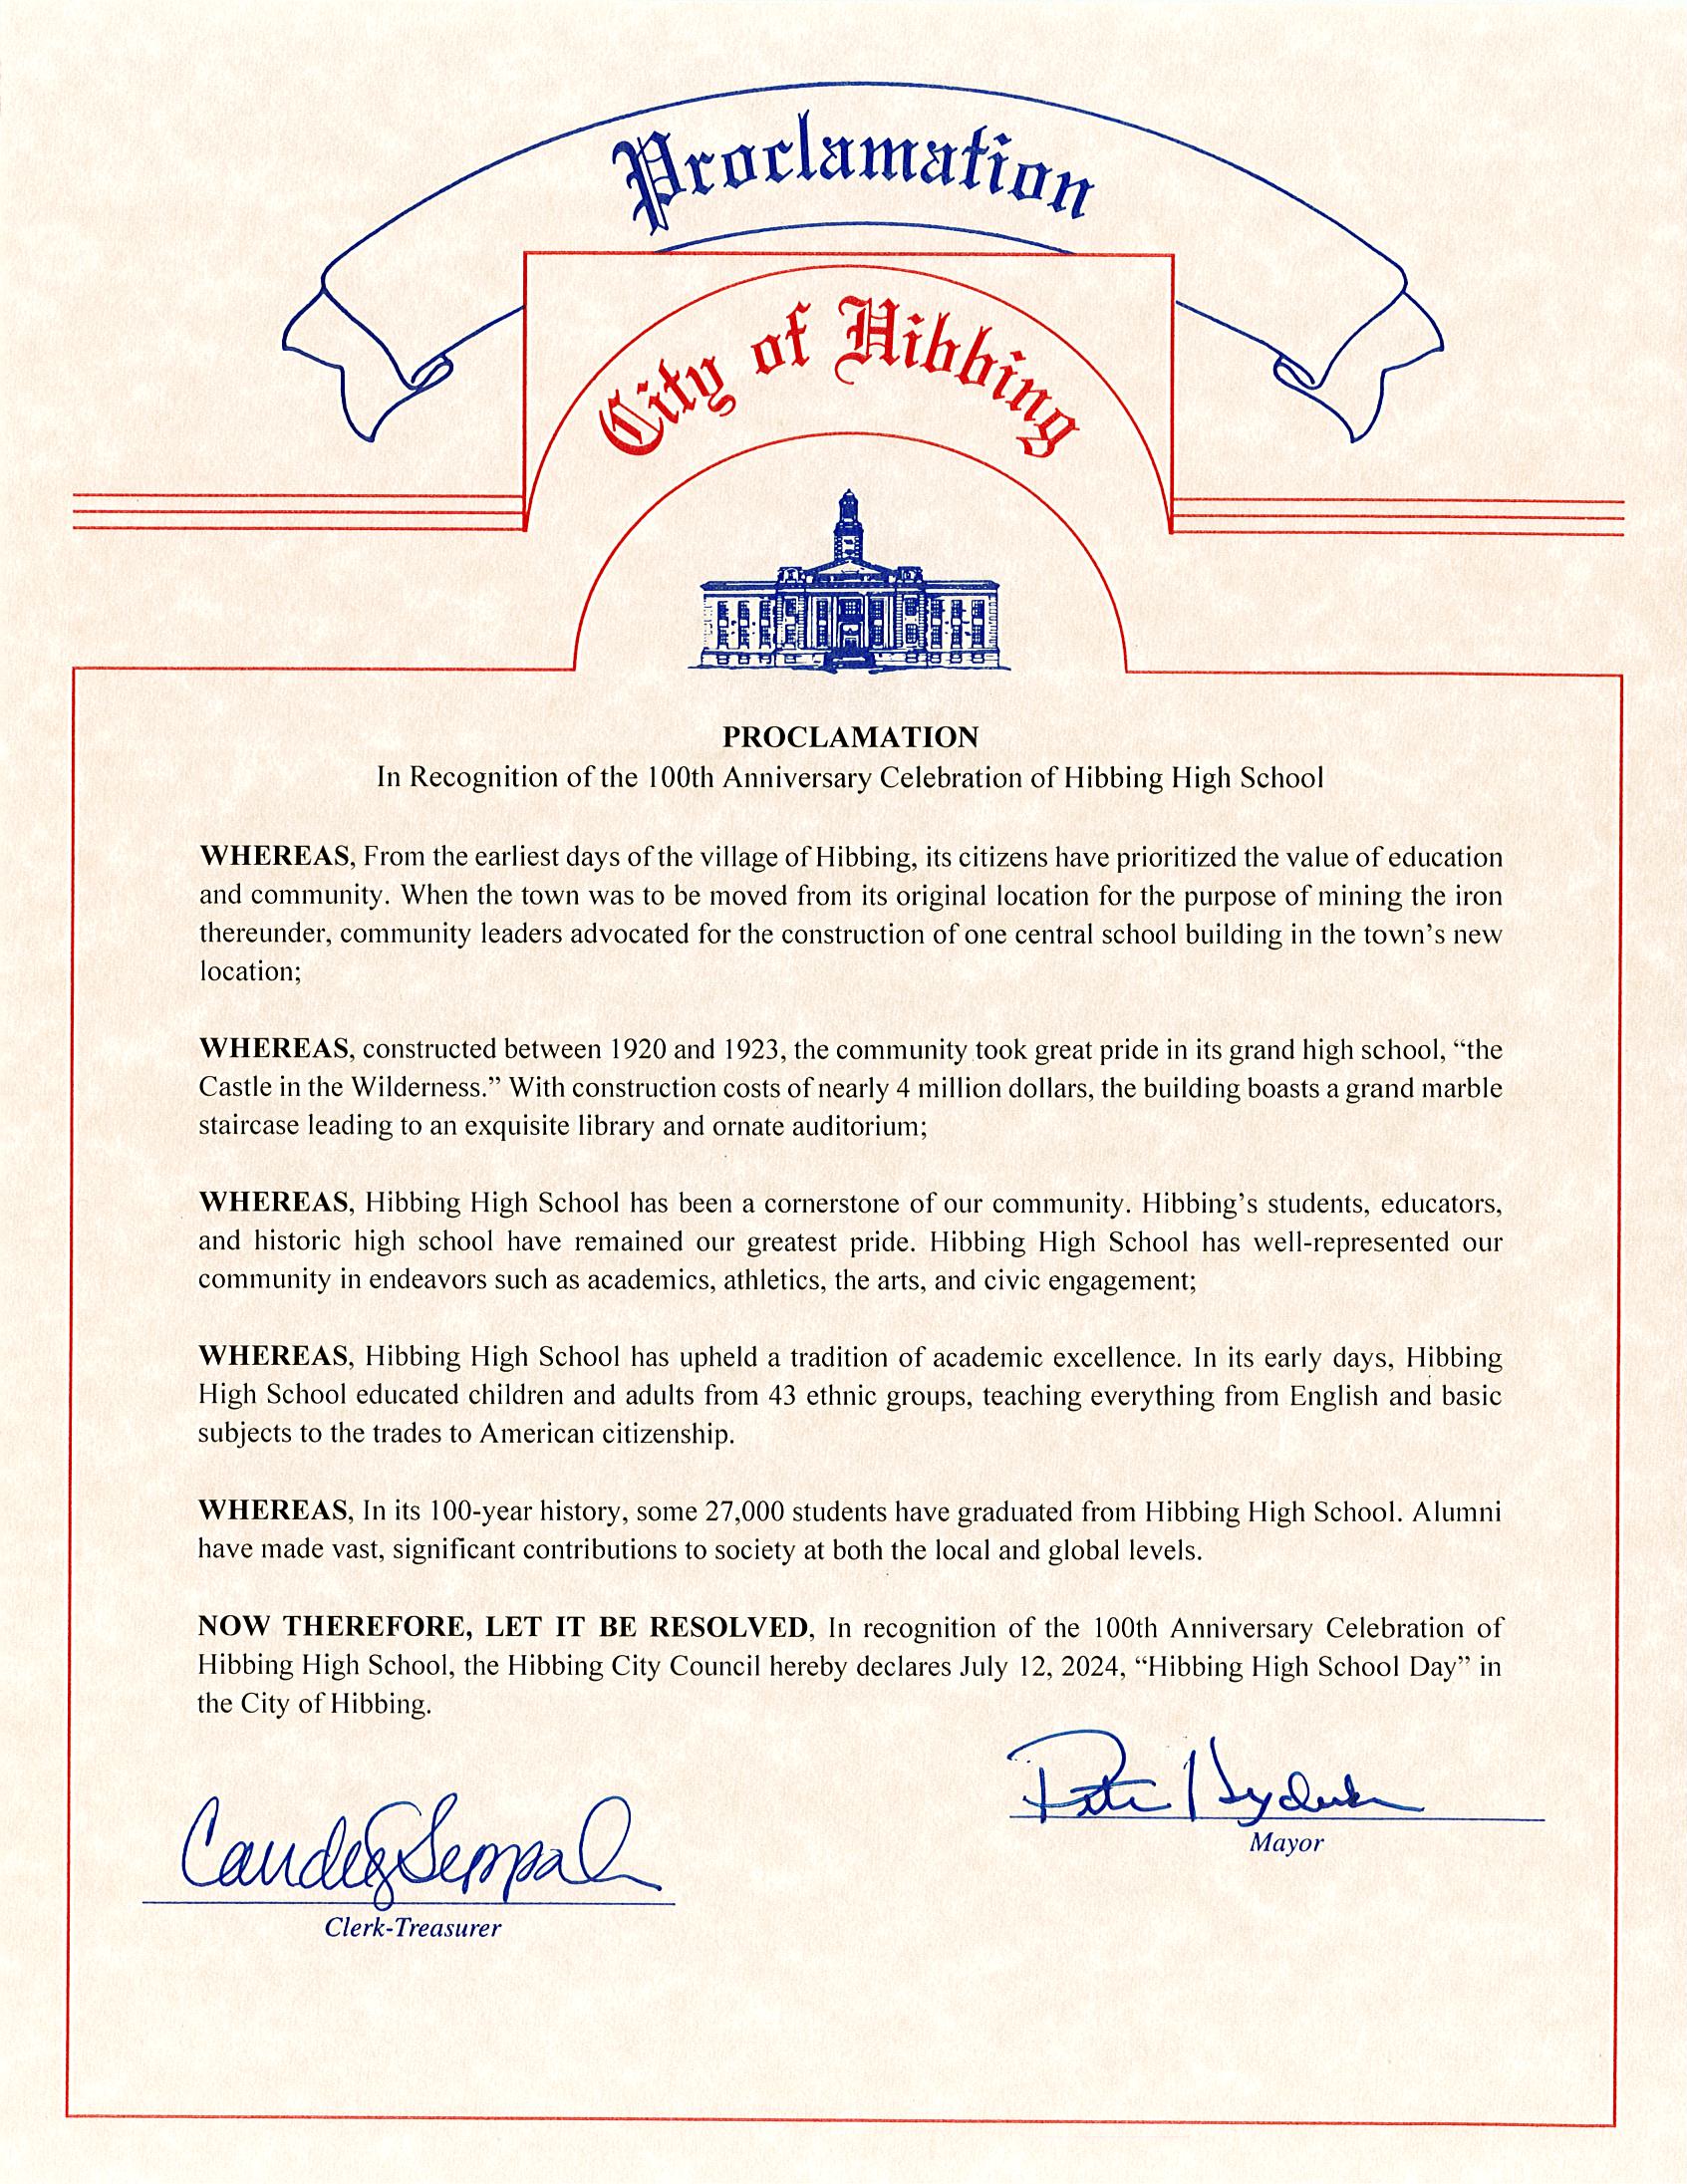 Proclamation
City of Hibbing
PROCLAMATION
In Recognition of the 100th Anniversary Celebration of Hibbing High School
WHEREAS, From the earliest days of the village of Hibbing, its citizens have prioritized the value of education
and community. When the town was to be moved from its original location for the purpose of mining the iron
thereunder, community leaders advocated for the construction of one central school building in the town’s new
location;
WHEREAS, constructed between 1920 and 1923, the community took great pride in its grand high school, “the
Castle in the Wilderness.” With construction costs of nearly 4 million dollars, the building boasts a grand marble
staircase leading to an exquisite library and ornate auditorium;
WHEREAS, Hibbing High School has been a cornerstone of our community. Hibbing’s students, educators,
and historic high school have remained our greatest pride. Hibbing High School has well-represented our
community in endeavors such as academics, athletics, the arts, and civic engagement;
WHEREAS, Hibbing High School has upheld a tradition of academic excellence. In its early days, Hibbing
High School educated children and adults from 43 ethnic groups, teaching everything from English and basic
subjects to the trades to American citizenship.
WHEREAS, In its 100-year history, some 27,000 students have graduated from Hibbing High School. Alumni
have made vast, significant contributions to society at both the local and global levels.
NOW THEREFORE, LET IT BE RESOLVED, In recognition of the 100th Anniversary Celebration of
Hibbing High School, the Hibbing City Council hereby declares July 12, 2024, “Hibbing High School Day” in
the City of Hibbing.
Pete Hyduke
Mayor
Clerk-Treasurer